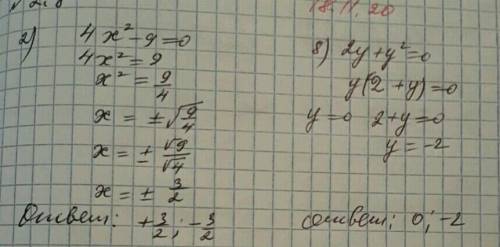 18.11.20
2) 4x² - 9 = 0
4x² = 9
x² = 9/4
x = ± √9/4
x = ± √9/√4
x = ± 3/2
Ответ: +3/2; -3/2
8) 2y + y² = 0
y(2 + y) = 0
y = 0 2 + y = 0
y = -2
ответ: 0; -2